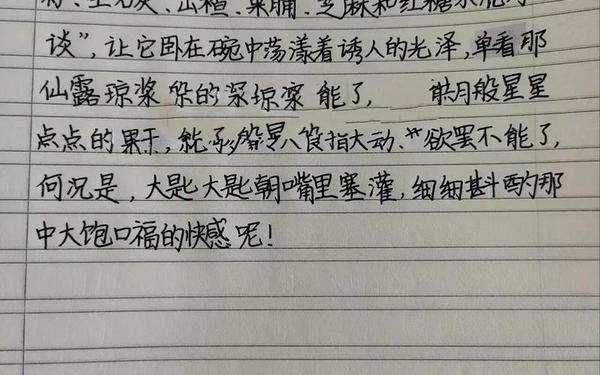 芝麻和红糖水
谈”，让它卧在碗中荡漾着诱人的光泽，单看那
仙露琼浆 的深琼浆 能了， 皓月般星星
点点的果干，能 食指大动、欲罢不能了，
何况是，大匙大匙朝嘴里塞灌，细细斟酌那
中大饱口福的快感呢！